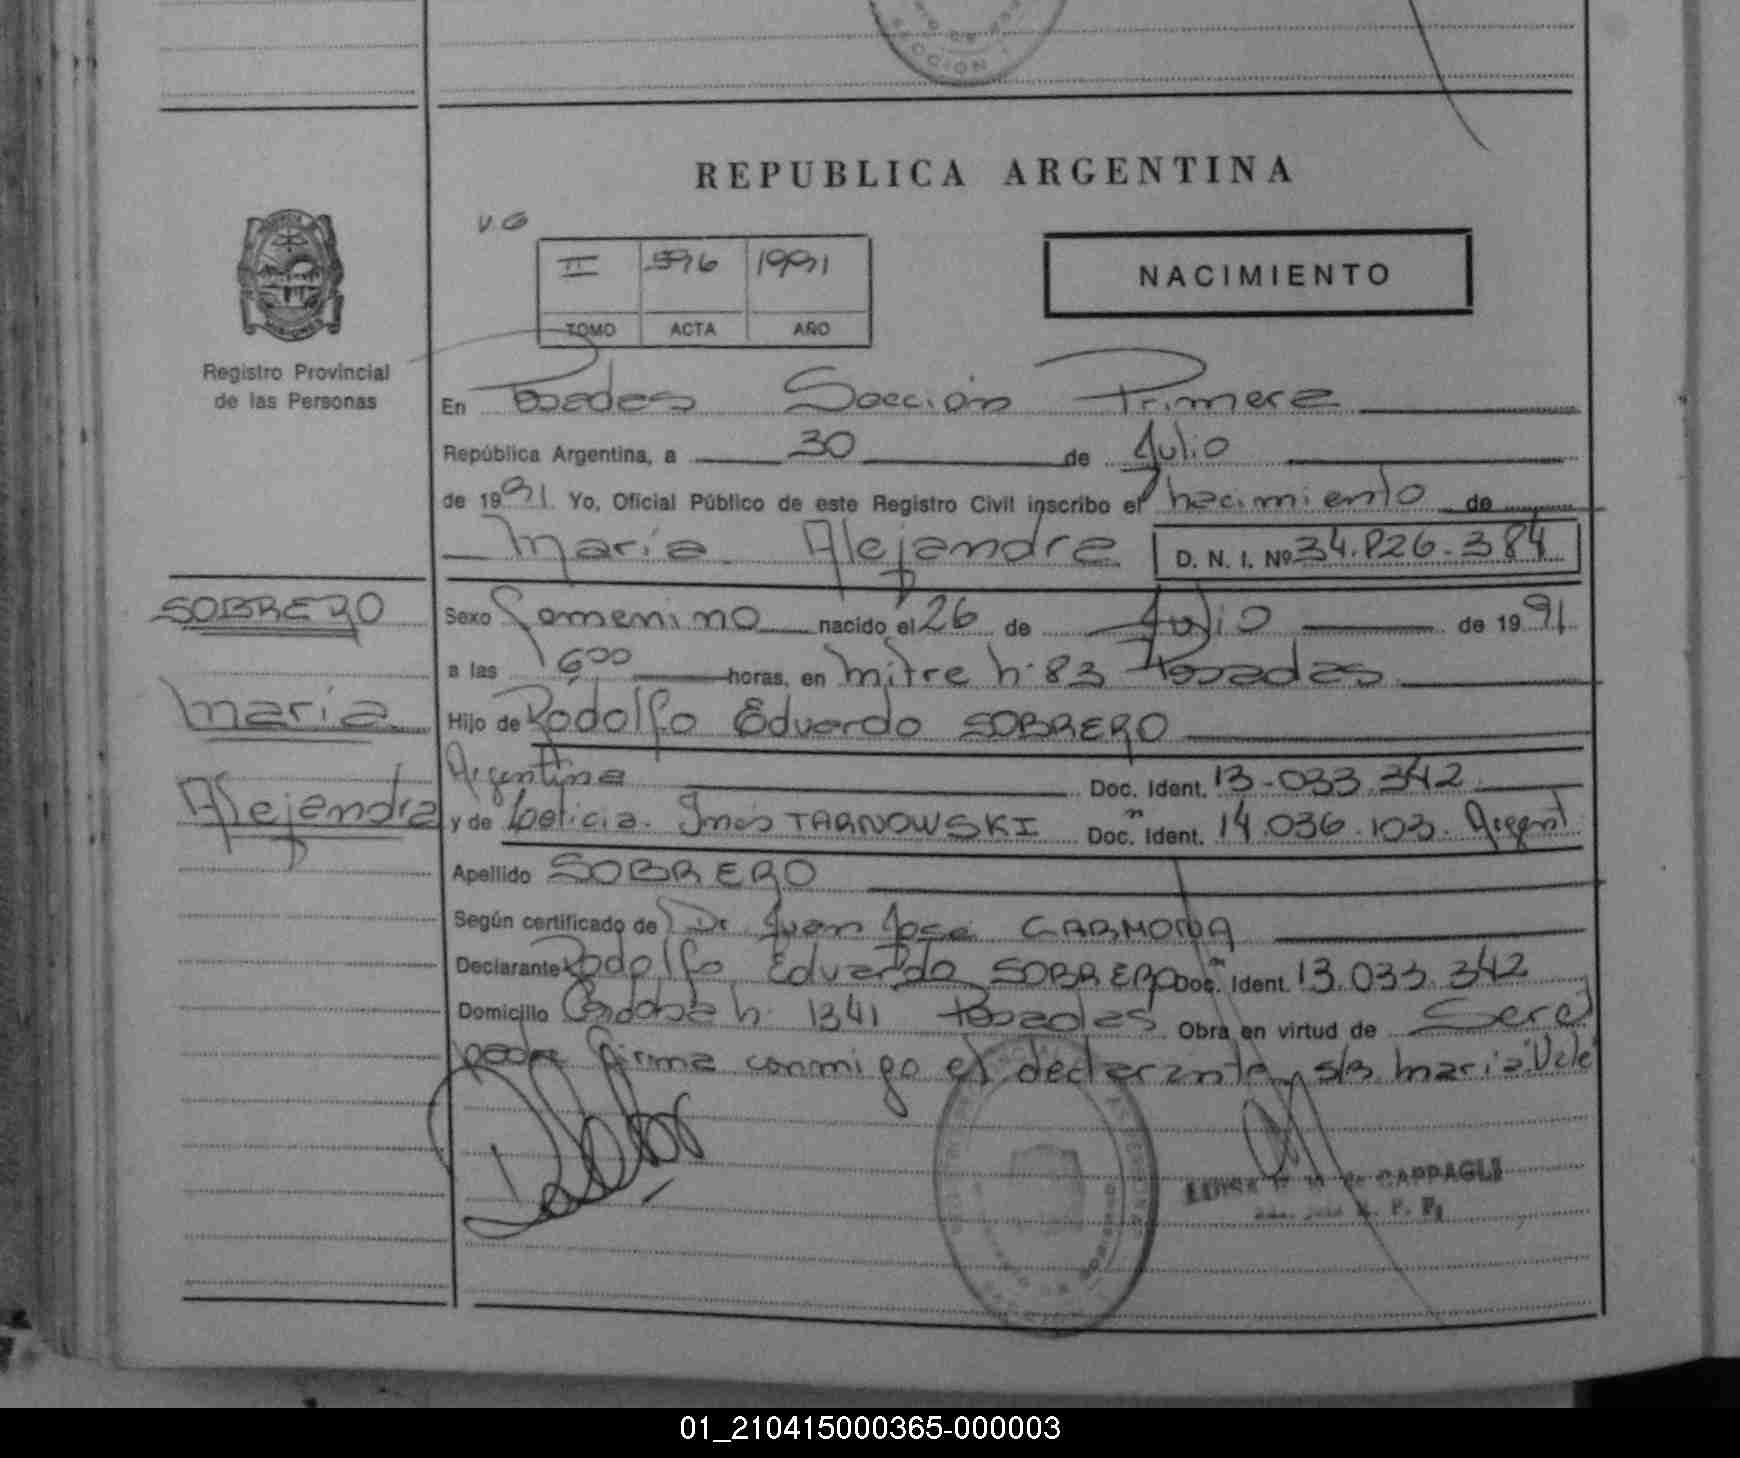 REPUBLICA ARGENTINA
V.G
II 596 1991
TOMO ACTA AÑO
NACIMIENTO
Registro Provincial
de las Personas
En Posadas Sección Primera
República Argentina, a 30 de Julio
de 1991 Yo, Oficial Público de este Registro Civil inscribo el nacimiento de
María Alejandra D. N. I. Nº 34.826.384
SOBRERO
María
Alejandra
Sexo femenino nacido el 26 de Julio de 1991
a las horas, en Mitre h. 83 Posadas
Hijo de Rodolfo Eduardo SOBRERO
Argentina Doc. Ident. 13.033.342
y de Leticia Inés TARNOWSKI Doc. Ident. 14.036.103. Argent
Apellido SOBRERO
Según certificado de Dr Juan José CARMONA
Declarante Rodolfo Eduardo SOBRERO Doc. Ident. 13.033.342
Domicilio Córdoba h. 1341 Posadas Obra en virtud de Ser el
padre firma conmigo el declarante s/b María "Vale"
CAPPAGLI
01_210415000365-000003